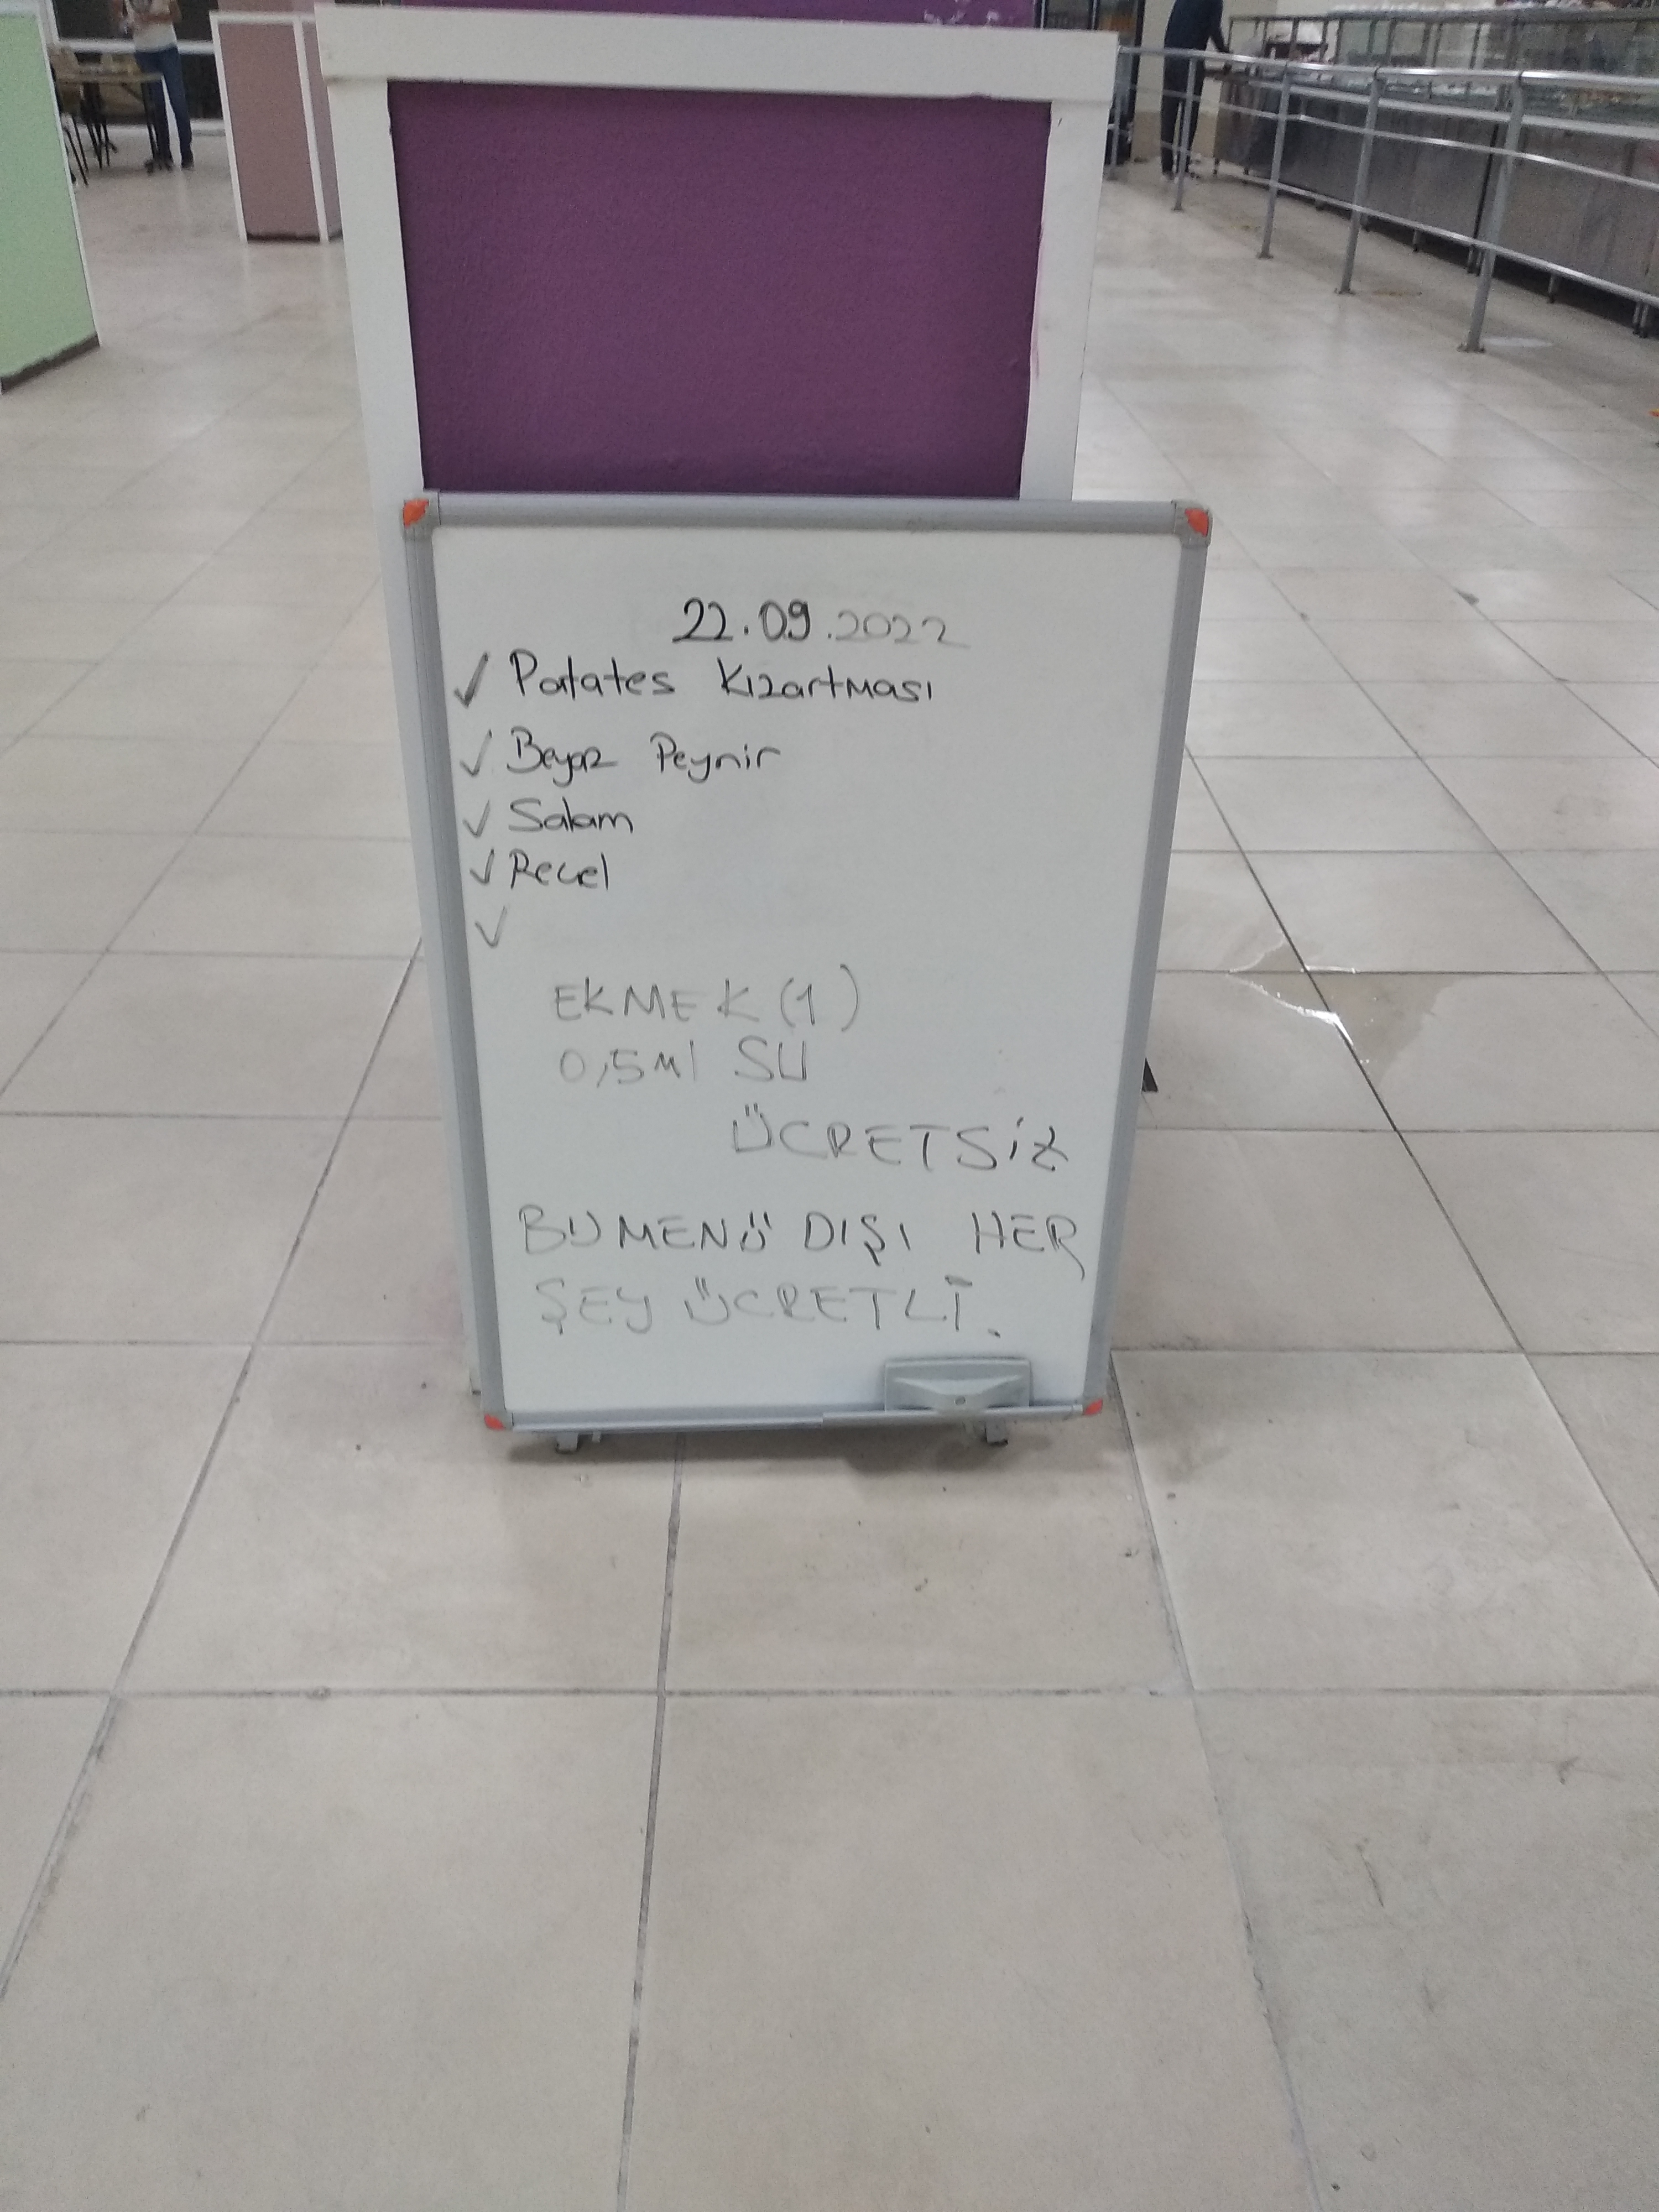 22.09.2022
✓ Patates Kızartması
✓ Beyaz Peynir
✓ Salam
✓ Recel
✓
EKMEK (1)
0,5ml SU
ÜCRETSİZ
BU MENÜ DIŞI HER
ŞEY ÜCRETLİ.